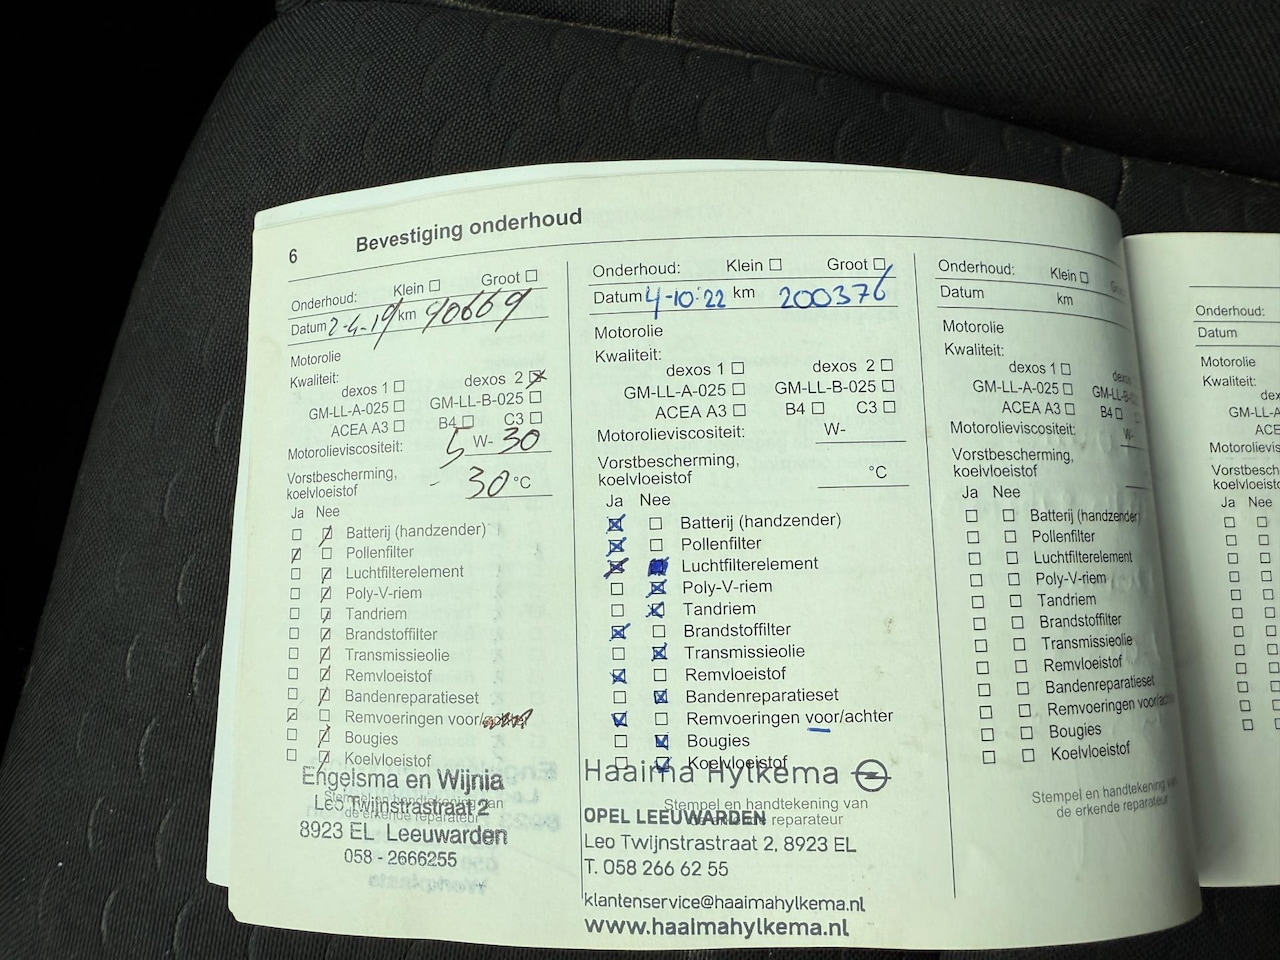 6 Bevestiging onderhoud
Onderhoud: Klein ☐ Groot ☐
Datum 2-4-19 km 90669
Motorolie
Kwaliteit:
dexos 1 ☐ dexos 2 ☒
GM-LL-A-025 ☐ GM-LL-B-025 ☐
ACEA A3 ☐ B4 ☐ C3 ☐
Motorolieviscositeit: 5 W- 30
Vorstbescherming,
koelvloeistof - 30 °C
Ja Nee
☐ ☒ Batterij (handzender)
☒ ☐ Pollenfilter
☐ ☒ Luchtfilterelement
☐ ☒ Poly-V-riem
☐ ☒ Tandriem
☐ ☒ Brandstoffilter
☐ ☒ Transmissieolie
☐ ☒ Remvloeistof
☐ ☒ Bandenreparatieset
☒ ☐ Remvoeringen voor/
☐ ☒ Bougies
☐ ☒ Koelvloeistof
Engelsma en Wijnia
Stempel en handtekening van
Leo Twijnstrastraat 2
de erkende reparateur
8923 EL Leeuwarden
058 - 2666255
Onderhoud: Klein ☐ Groot ☒
Datum 4-10-22 km 200376
Motorolie
Kwaliteit:
dexos 1 ☐ dexos 2 ☐
GM-LL-A-025 ☐ GM-LL-B-025 ☐
ACEA A3 ☐ B4 ☐ C3 ☐
Motorolieviscositeit: W-
Vorstbescherming,
koelvloeistof °C
Ja Nee
☒ ☐ Batterij (handzender)
☒ ☐ Pollenfilter
☒ ■ Luchtfilterelement
☐ ☒ Poly-V-riem
☐ ☒ Tandriem
☒ ☐ Brandstoffilter
☐ ☒ Transmissieolie
☒ ☐ Remvloeistof
☐ ☒ Bandenreparatieset
☒ ☐ Remvoeringen voor/achter
☐ ☒ Bougies
☐ ☒ Koelvloeistof
Haaima Hylkema
Stempel en handtekening van
OPEL LEEUWARDEN
de erkende reparateur
Leo Twijnstrastraat 2, 8923 EL
T. 058 266 62 55
klantenservice@haaimahylkema.nl
www.haaimahylkema.nl
Onderhoud: Klein ☐
Datum km
Motorolie
Kwaliteit:
dexos 1 ☐
GM-LL-A-025 ☐ GM-LL-B-
ACEA A3 ☐ B4 ☐
Motorolieviscositeit: W-
Vorstbescherming,
koelvloeistof
Ja Nee
☐ ☐ Batterij (handzender)
☐ ☐ Pollenfilter
☐ ☐ Luchtfilterelement
☐ ☐ Poly-V-riem
☐ ☐ Tandriem
☐ ☐ Brandstoffilter
☐ ☐ Transmissieolie
☐ ☐ Remvloeistof
☐ ☐ Bandenreparatieset
☐ ☐ Remvoeringen voor/
☐ ☐ Bougies
☐ ☐ Koelvloeistof
Stempel en handtekening
de erkende reparateur
Onderhoud:
Datum
Motorolie
Kwaliteit:
GM-LL-A
Ja Nee